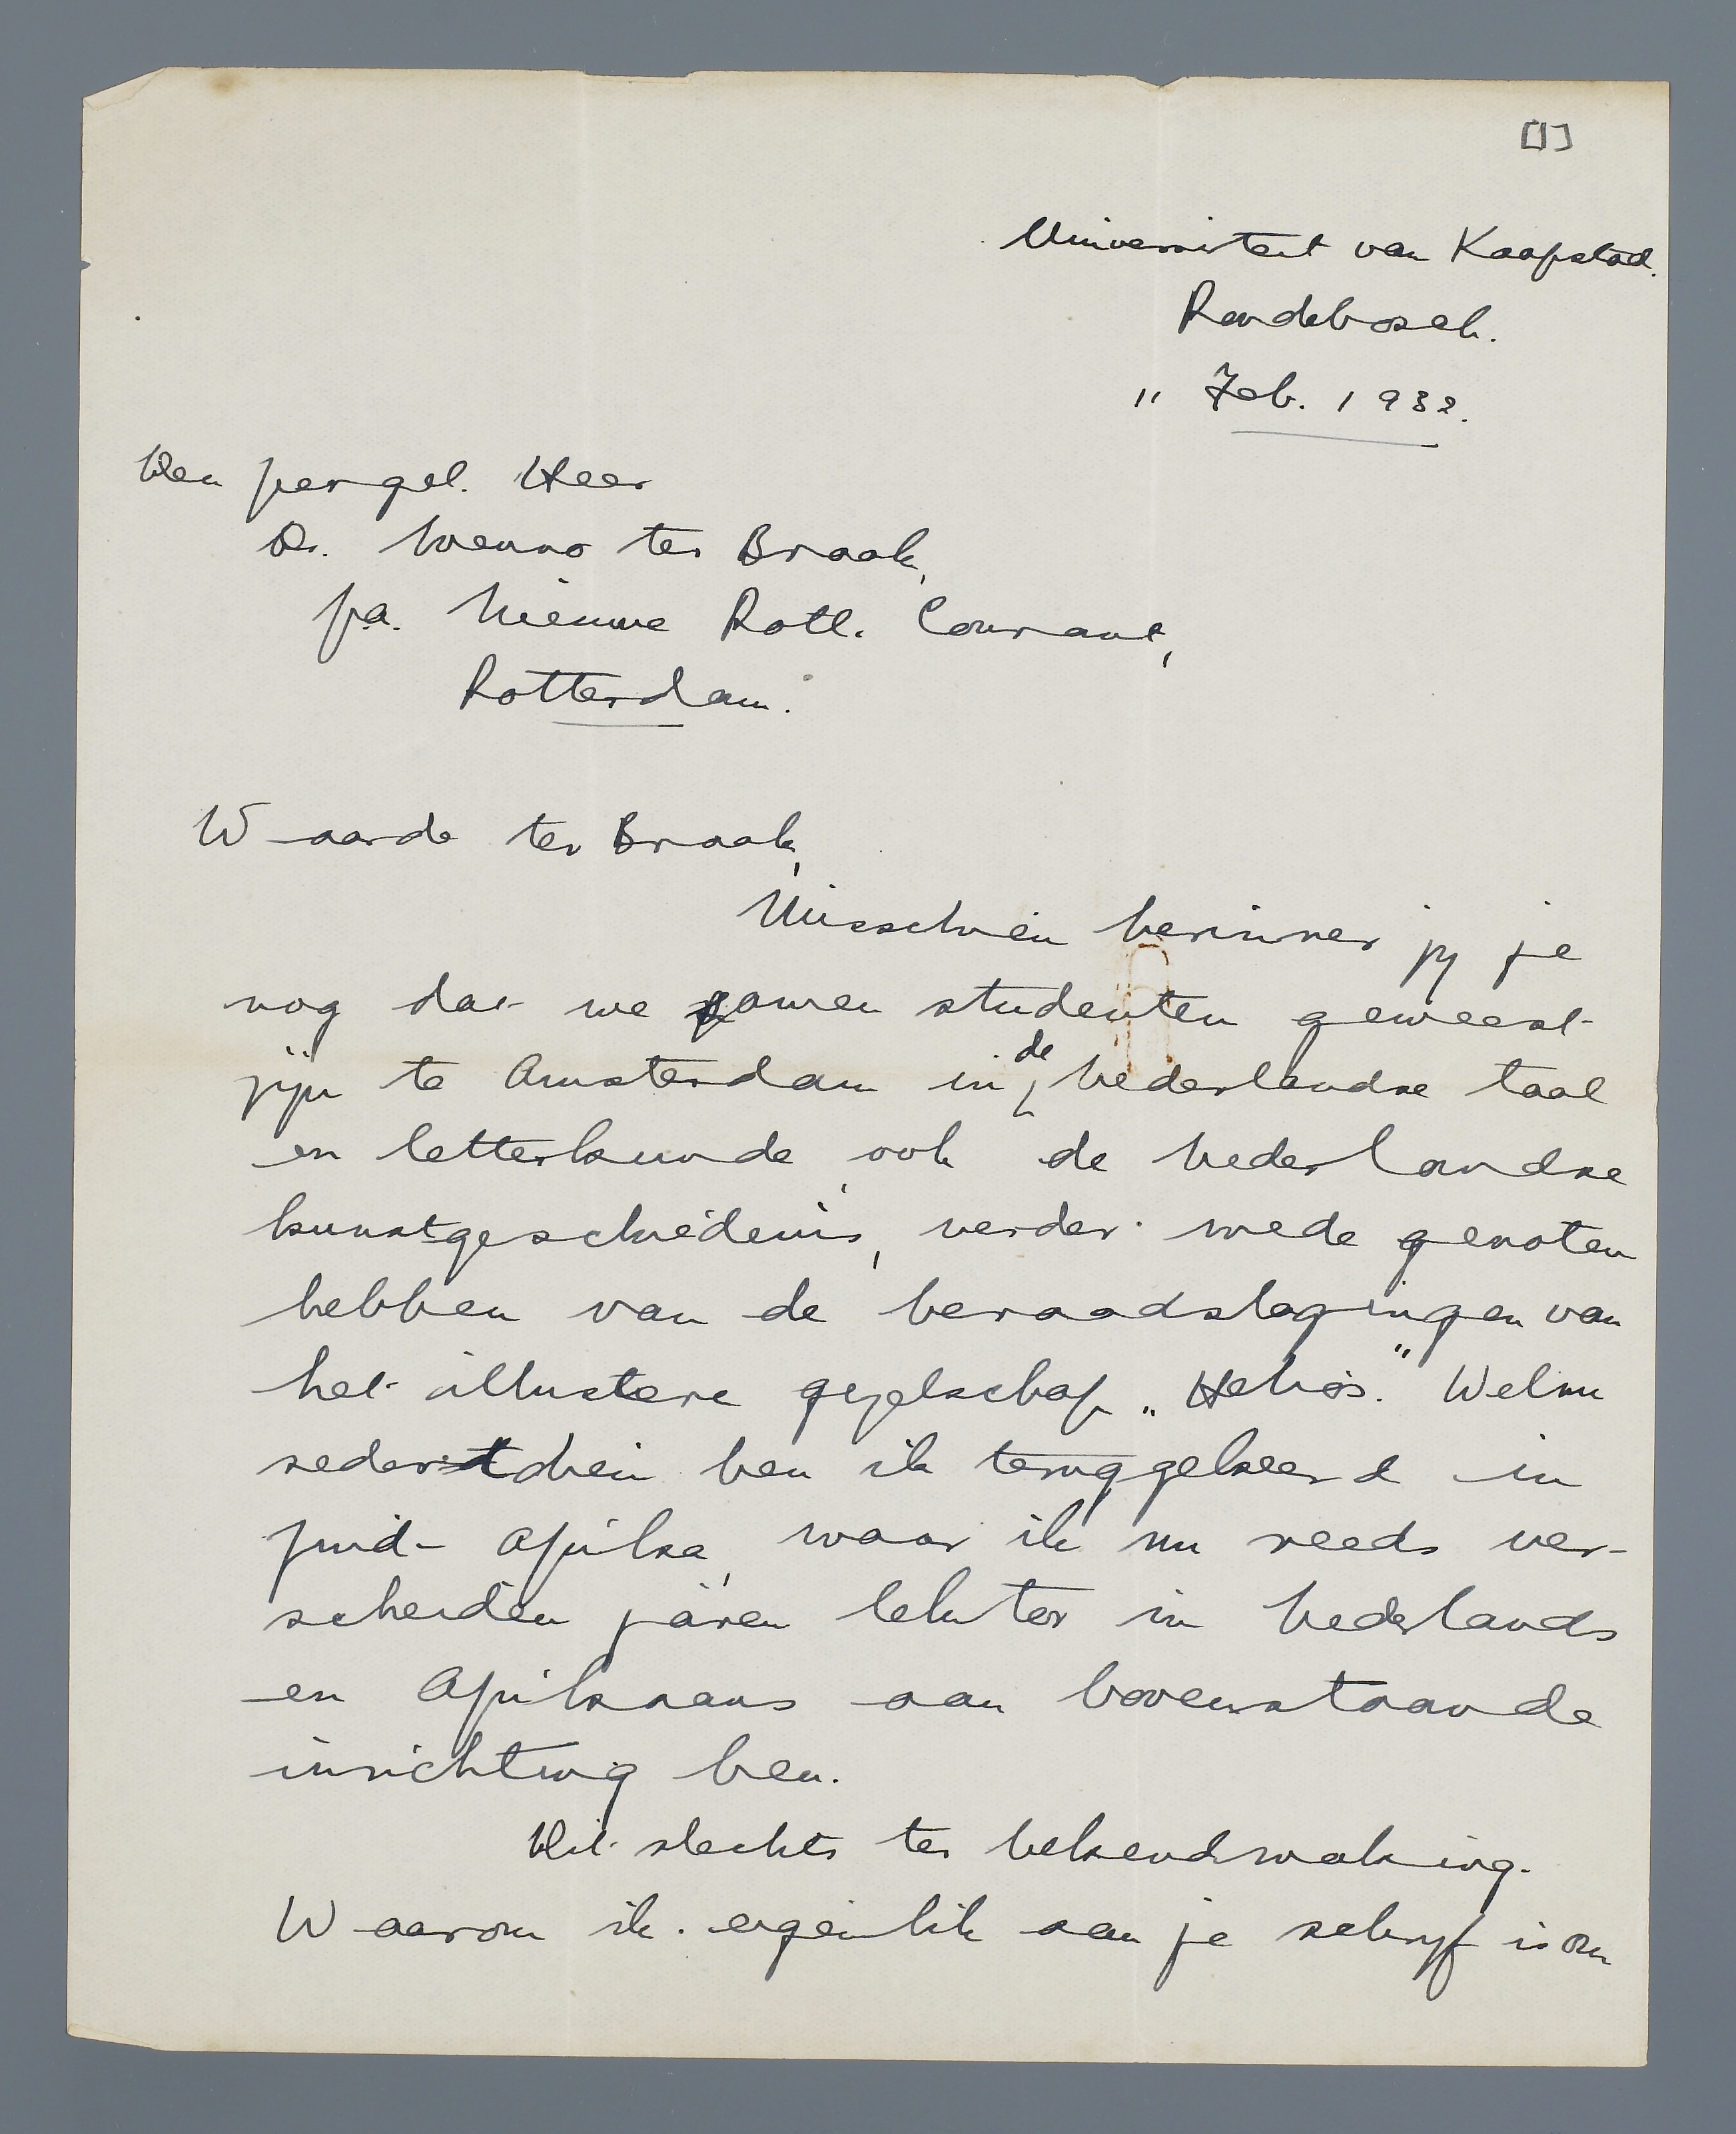 [1]
Universiteit van Kaapstad.
Rondebosch.
11 Feb. 1932.
Den
Heer
Dr. Menno ter Braak,
p.a. Nieuwe Rott. Courant,
Rotterdam.
Waarde ter Braak,
Misschien herinner jy je
nog dat we samen studenten geweest
zijn te Amsterdam in de Nederlandse taal
en letterkunde, ook de Nederlandse
kunstgeschiedenis, verder mede genoten
hebben van de beraadslagingen van
het illustere gezelschap „Helios." Welnu
sedertdien ben ik teruggekeerd in
Zuid-Afrika, waar ik nu reeds ver-
scheiden jaren lektor in Nederlands
en Afrikaans aan bovenstaande
inrichting ben.
Dit slechts ter bekendmaking.
Waarom ik eigenlik aan je schryf is om